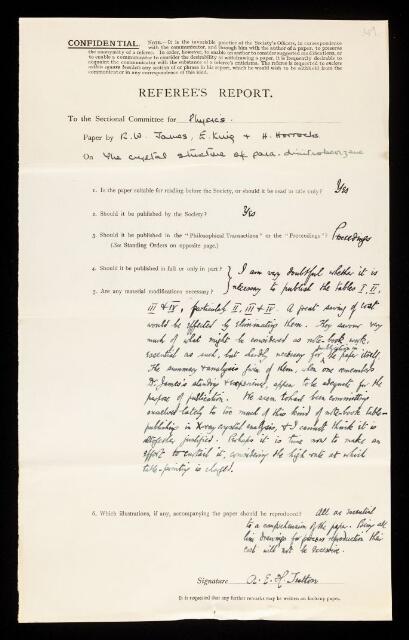 CONFIDENTIAL. NOTE.—It is the invariable practice of the Society's Officers, in correspondence
with the communicator, and through him with the author of a paper, to preserve
the anonymity of a referee. In order, however, to enable an author to consider suggested modifications, or
to enable a communicator to consider the desirability of withdrawing a paper, it is frequently desirable to
acquaint the communicator with the substance of a referee's criticisms. The referee is requested to enclose
within square brackets any section of or phrase in his report, which he would wish to be withheld from the
communicator in any correspondence of this kind.
REFEREE'S REPORT.
To the Sectional Committee for Physics.
Paper by R. W. James, E. King & H. Horrocks
On The crystal structure of para-dinitrobenzene
1. Is the paper suitable for reading before the Society, or should it be read in title only? Yes
2. Should it be published by the Society? Yes
3. Should it be published in the "Philosophical Transactions" or the "Proceedings"? Proceedings
(See Standing Orders on opposite page.)
4. Should it be published in full or only in part? I am very doubtful whether it is
5. Are any material modifications necessary? necessary to publish the tables I, II,
III & IV, particularly II, III & IV. A great saving of cost
would be effected by eliminating them. They savour very
much of what might be considered as note-book work,
essential as such, but hardly necessary for publication the paper itself.
The summary & analysis given of them, when one remembers
Dr James's standing & experience, appear to be adequate for the
purpose of publication. We seem to have been committing
ourselves lately to too much of this kind of note-book table-
publishing in X-ray crystal analysis, & I cannot think it is
altogether justified. Perhaps it is time now to make an
effort to curtail it, considering the high rate at which
table-printing is charged.
6. Which illustrations, if any, accompanying the paper should be reproduced? All are essential
to a comprehension of the paper. Being all
line drawings for process reproduction the
cost will not be excessive.
Signature A. E. H. Tutton
It is requested that any further remarks may be written on foolscap paper.